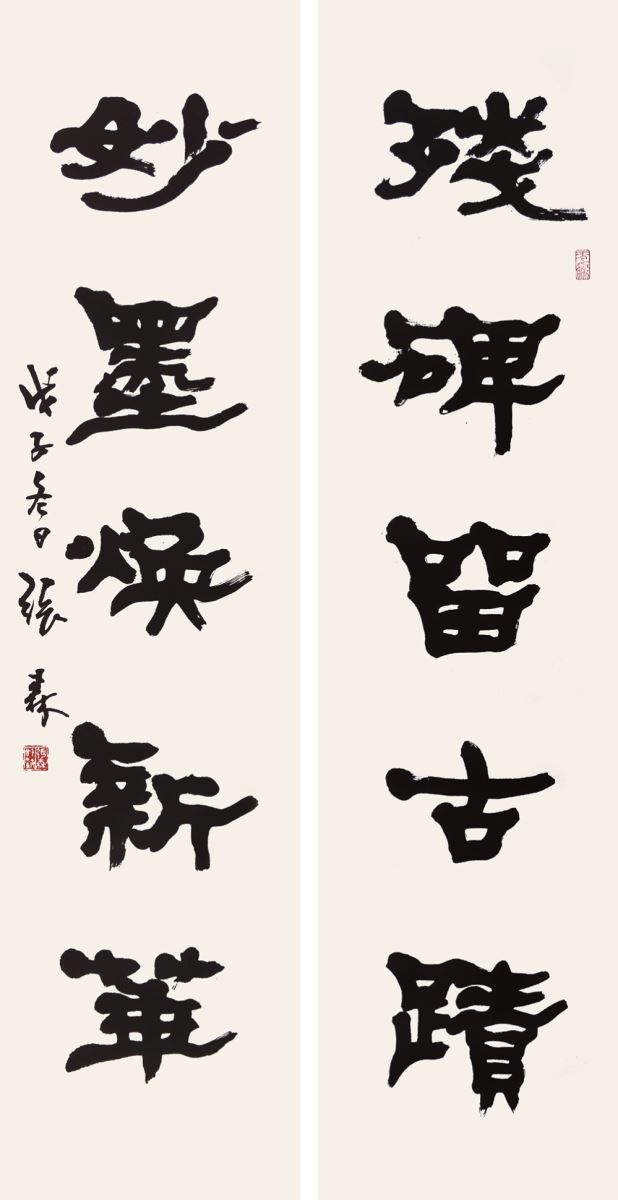 殘碑留古蹟
妙墨焕新華
戊子冬日張森